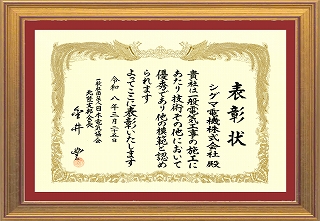 表彰状
シグマ電機株式会社 殿
貴社は一般電気工事の施工に
あたり技術その他において
優秀であり他の模範と認め
られます
よってここに表彰いたします
令和 八年三月二十五日
一般社団法人日本電気協会
北陸支部会長
金井 豊